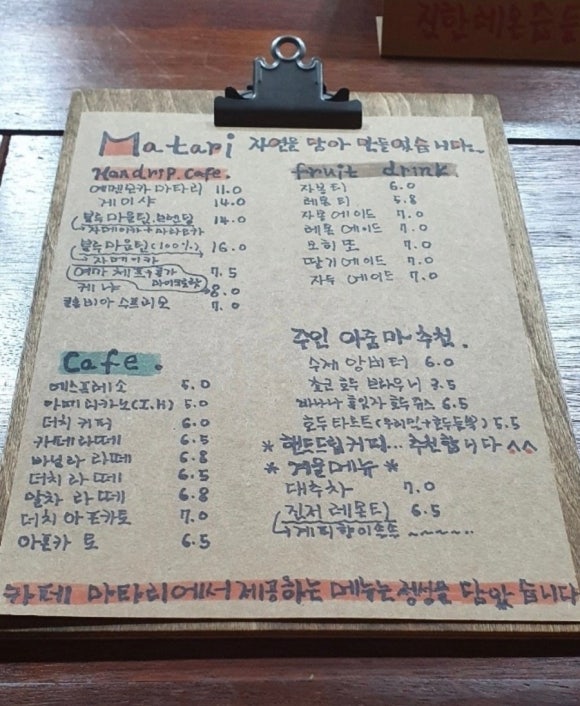 진한레몬
Matari 자연을 담아 만들었습니다~
Handrip. Cafe.
예멘모카 마타리 11.0
게이샤 14.0
블루마운틴.블렌딩 14.0
자메이카+
블루마운틴(100%) 16.0
자메이카
7.5
케냐 8.0
콜롬비아 수프리모 7.0
fruit drink
자몽티 6.0
레몬티 5.8
자몽에이드 7.0
레몬에이드 7.0
모히또 7.0
딸기에이드 7.0
자두에이드 7.0
Cafe.
에스프레소 5.0
아메리카노(I.H) 5.0
더치커피 6.0
카페라떼 6.5
바닐라 라떼 6.8
더치라떼 6.5
말차 라떼 6.8
더치아포카토 7.0
아포카토 6.5
주인 아줌마 추천.
수제 앙버터 6.0
초코 호두 브라우니 3.5
바나나 6.5
호두타르트 5.5
* 핸드드립커피... 추천합니다 ^^
* 겨울메뉴 *
대추차 7.0
진저레몬티 6.5
카페 마타리에서 제공하는 메뉴는 정성을 담았습니다